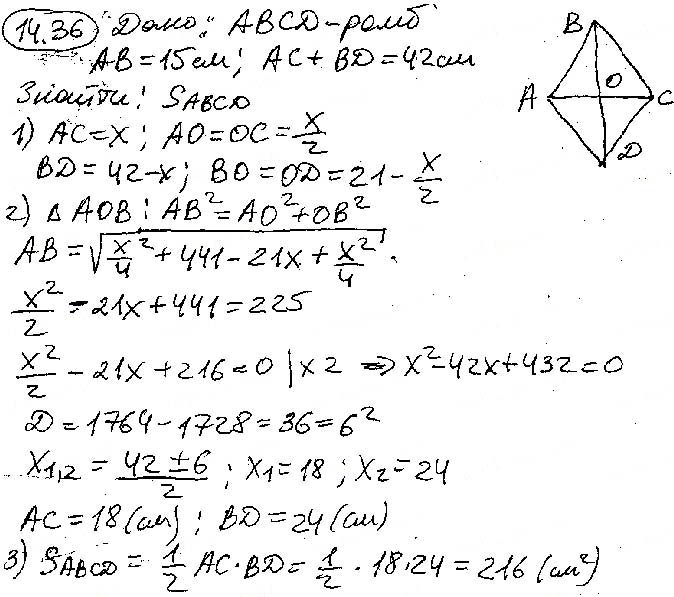 14.36 Дано: ABCD - ромб
AB = 15 см; AC + BD = 42 см
Знайти: S_ABCD
B
A O C
D
1) AC = x; AO = OC = x/2
BD = 42 - x; BO = OD = 21 - x/2
2) △ AOB: AB² = AO² + OB²
AB = √(x²/4 + 441 - 21x + x²/4).
x²/2 - 21x + 441 = 225
x²/2 - 21x + 216 = 0 | x 2 ⇒ x² - 42x + 432 = 0
D = 1764 - 1728 = 36 = 6²
x₁,₂ = (42 ± 6)/2; x₁ = 18; x₂ = 24
AC = 18 (см); BD = 24 (см)
3) S_ABCD = 1/2 AC · BD = 1/2 · 18 · 24 = 216 (см²)